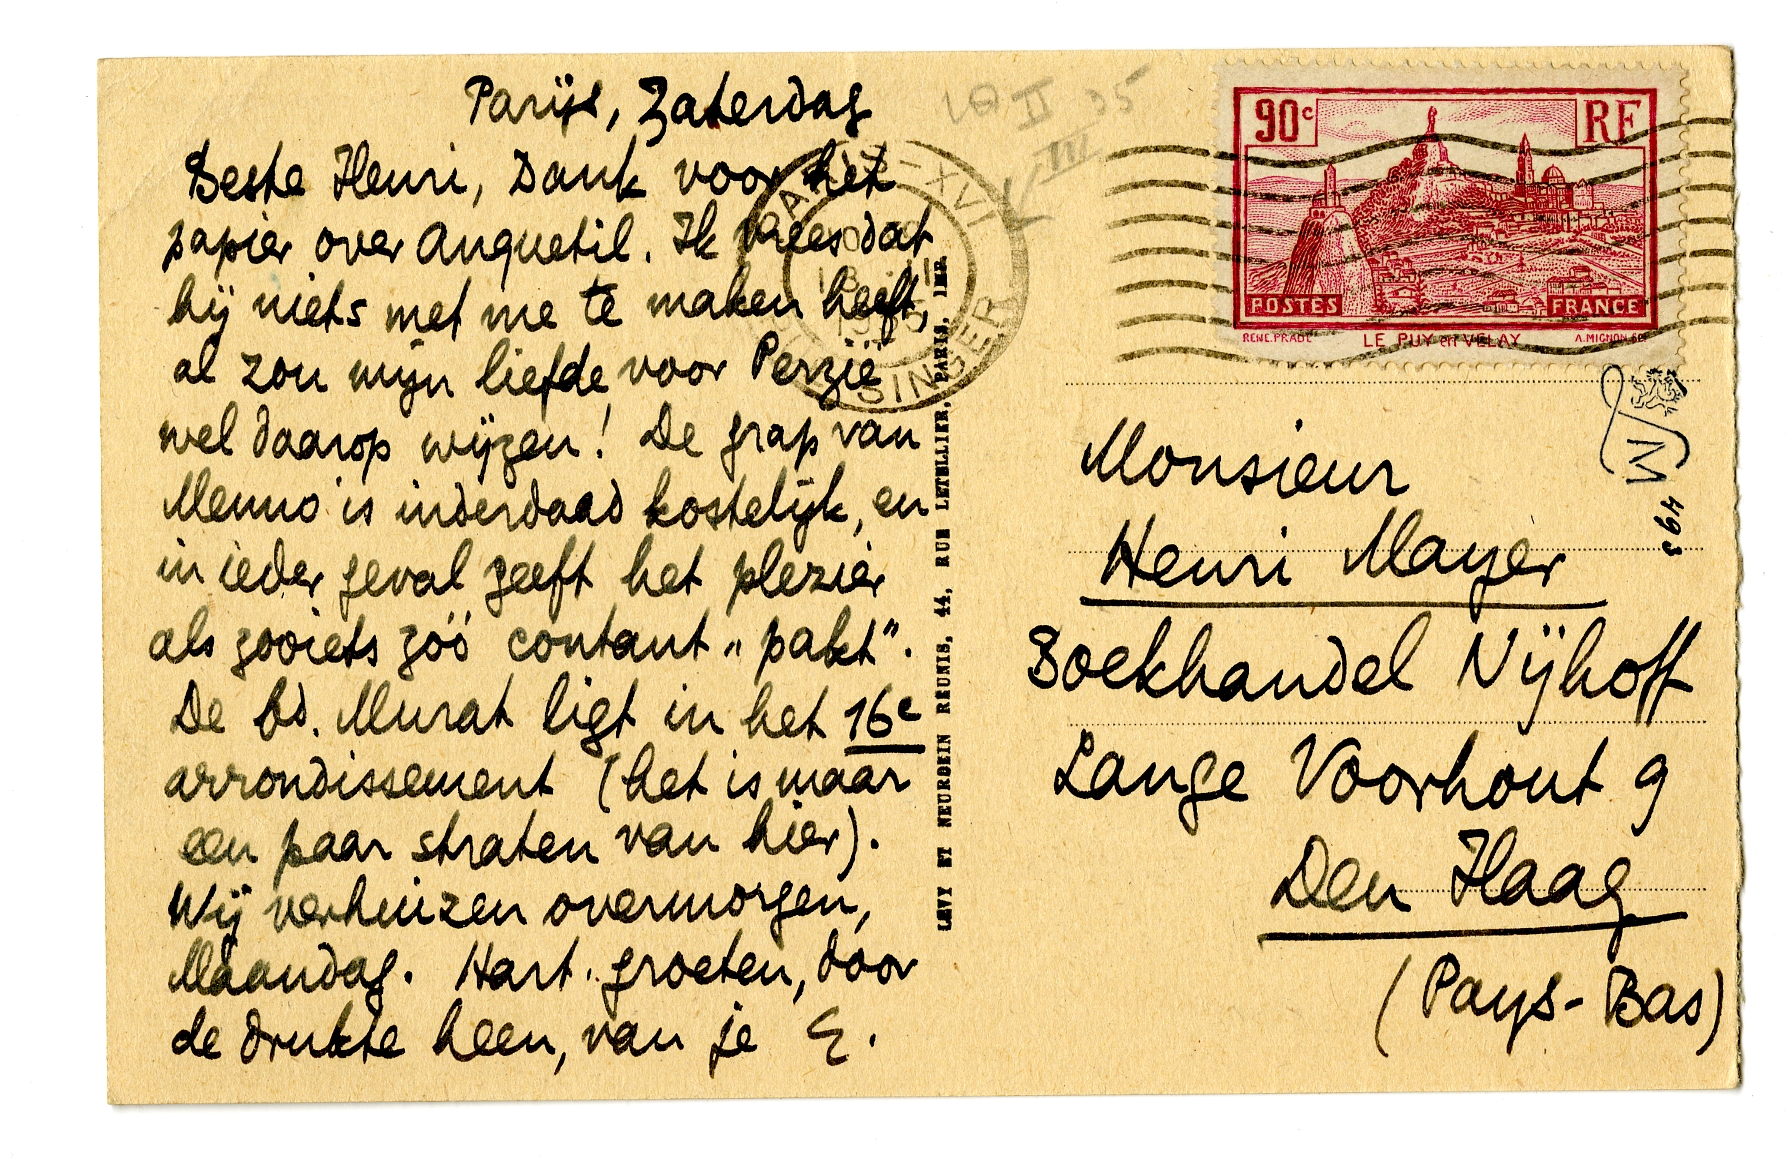 Parijs, Zaterdag
Beste Henri, Dank voor het
papier over Anquetil. Ik vrees dat
hij niets met me te maken heeft,
al zou mijn liefde voor Perzië
wel daarop wijzen! De grap van
Menno is inderdaad kostelijk, en
in ieder geval geeft het plezier
als zooiets zóó contant „pakt”.
De bd. Murat ligt in het 16e
arrondissement (het is maar
een paar straten van hier).
Wij verhuizen overmorgen,
Maandag. Hart. groeten, door
de drukte heen, van je E.
LEVY ET NEURDEIN REUNIS, 44, RUE LETELLIER, PARIS, IMP.
II 35
III
PARIS-XVI
SINGER
90c RF
POSTES FRANCE
RENE.PRADE LE PUY en VELAY A.MIGNON.SC
M
493
Monsieur
Henri Mayer
Boekhandel Nijhoff
Lange Voorhout 9
Den Haag
(Pays-Bas)